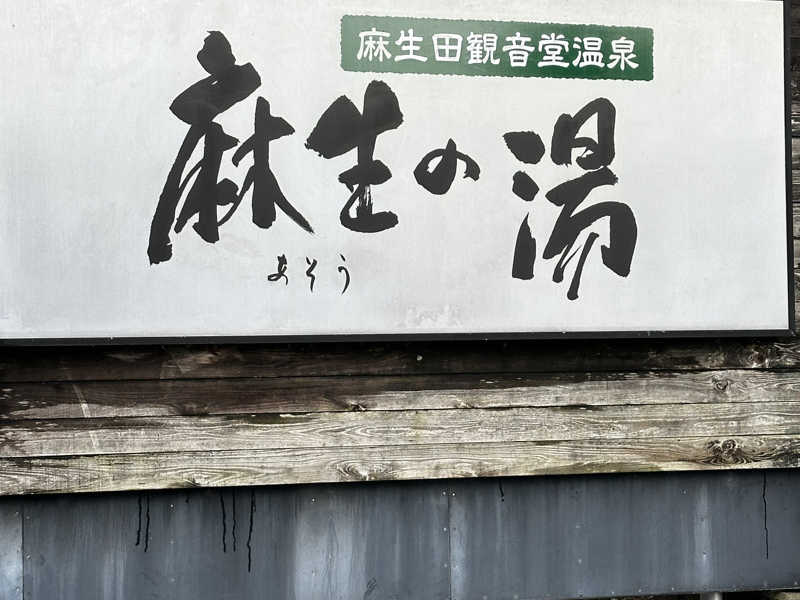 麻生田観音堂温泉
麻生の湯
あそう